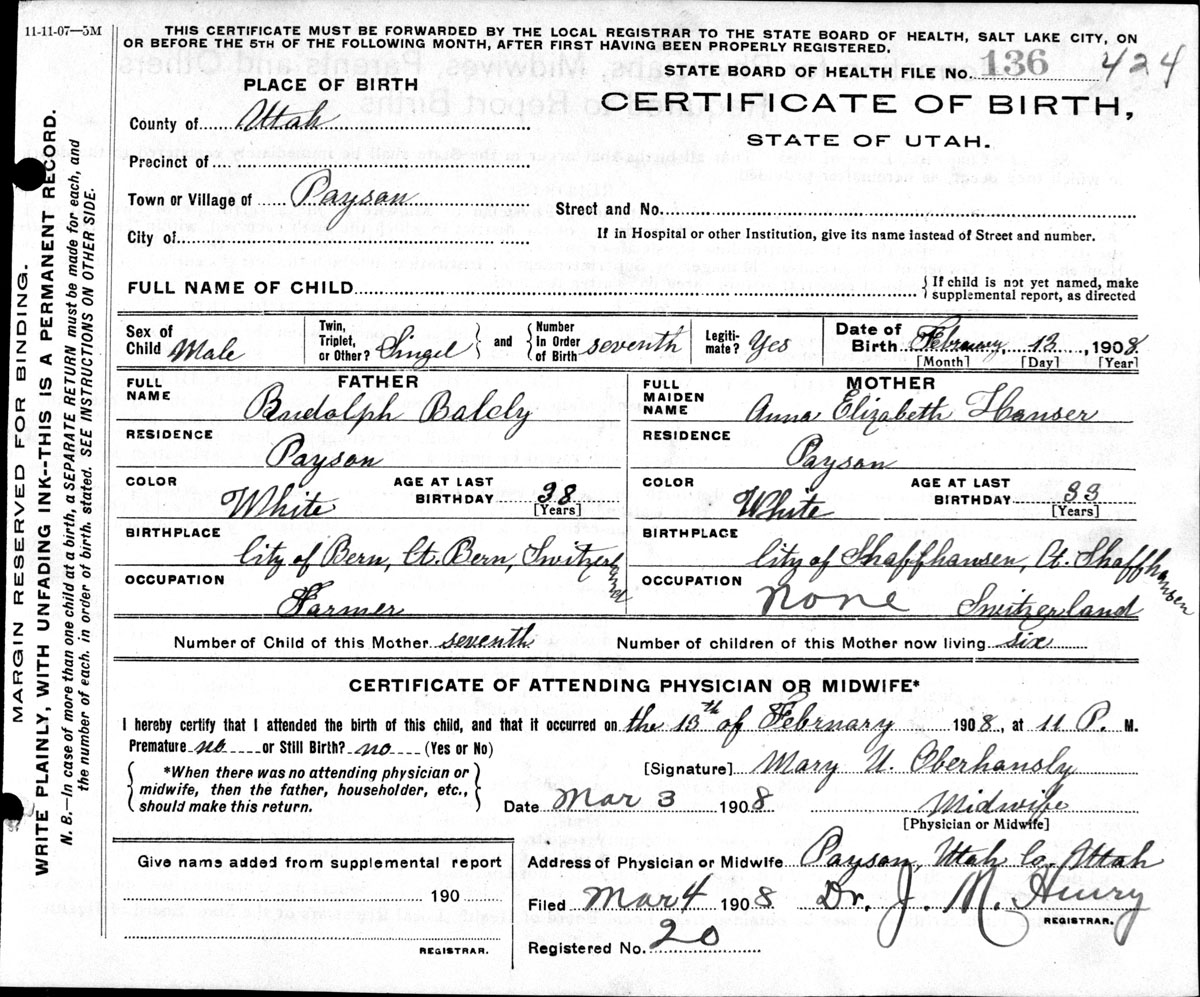 11-11-07—5M
THIS CERTIFICATE MUST BE FORWARDED BY THE LOCAL REGISTRAR TO THE STATE BOARD OF HEALTH, SALT LAKE CITY, ON
OR BEFORE THE 5TH OF THE FOLLOWING MONTH, AFTER FIRST HAVING BEEN PROPERLY REGISTERED.
STATE BOARD OF HEALTH FILE No. 136 424
PLACE OF BIRTH
CERTIFICATE OF BIRTH,
STATE OF UTAH.
County of Utah
Precinct of
Town or Village of Payson
Street and No.
City of
If in Hospital or other Institution, give its name instead of Street and number.
FULL NAME OF CHILD { If child is not yet named, make
supplemental report, as directed
Sex of Child Male
Twin, Triplet, or Other? Singel } and { Number In Order of Birth seventh
Legitimate? Yes
Date of Birth February, 13, 1908.
[Month] [Day] [Year]
FATHER
FULL NAME Rudolph Balcly
RESIDENCE Payson
COLOR White
AGE AT LAST BIRTHDAY 38 [Years]
BIRTHPLACE City of Bern, Ct. Bern, Switzerland
OCCUPATION Farmer
MOTHER
FULL MAIDEN NAME Anna Elizabeth Hauser
RESIDENCE Payson
COLOR White
AGE AT LAST BIRTHDAY 33 [Years]
BIRTHPLACE City of Shaffhausen, Ct. Shaffhausen
Switzerland
OCCUPATION None
Number of Child of this Mother seventh
Number of children of this Mother now living six
CERTIFICATE OF ATTENDING PHYSICIAN OR MIDWIFE*
I hereby certify that I attended the birth of this child, and that it occurred on the 13th of February 1908, at 11 P. M.
Premature no or Still Birth? no (Yes or No)
{ *When there was no attending physician or
midwife, then the father, householder, etc.,
should make this return. }
[Signature] Mary U. Oberhansly
Date Mar 3 1908 Midwife
[Physician or Midwife]
Give name added from supplemental report
190
REGISTRAR.
Address of Physician or Midwife Payson, Utah Co. Utah
Filed Mar 4 1908. Dr. J. M. Henry
REGISTRAR.
Registered No. 20
MARGIN RESERVED FOR BINDING.
WRITE PLAINLY, WITH UNFADING INK--THIS IS A PERMANENT RECORD.
N. B.—In case of more than one child at a birth, a SEPARATE RETURN must be made for each, and
the number of each, in order of birth, stated. SEE INSTRUCTIONS ON OTHER SIDE.